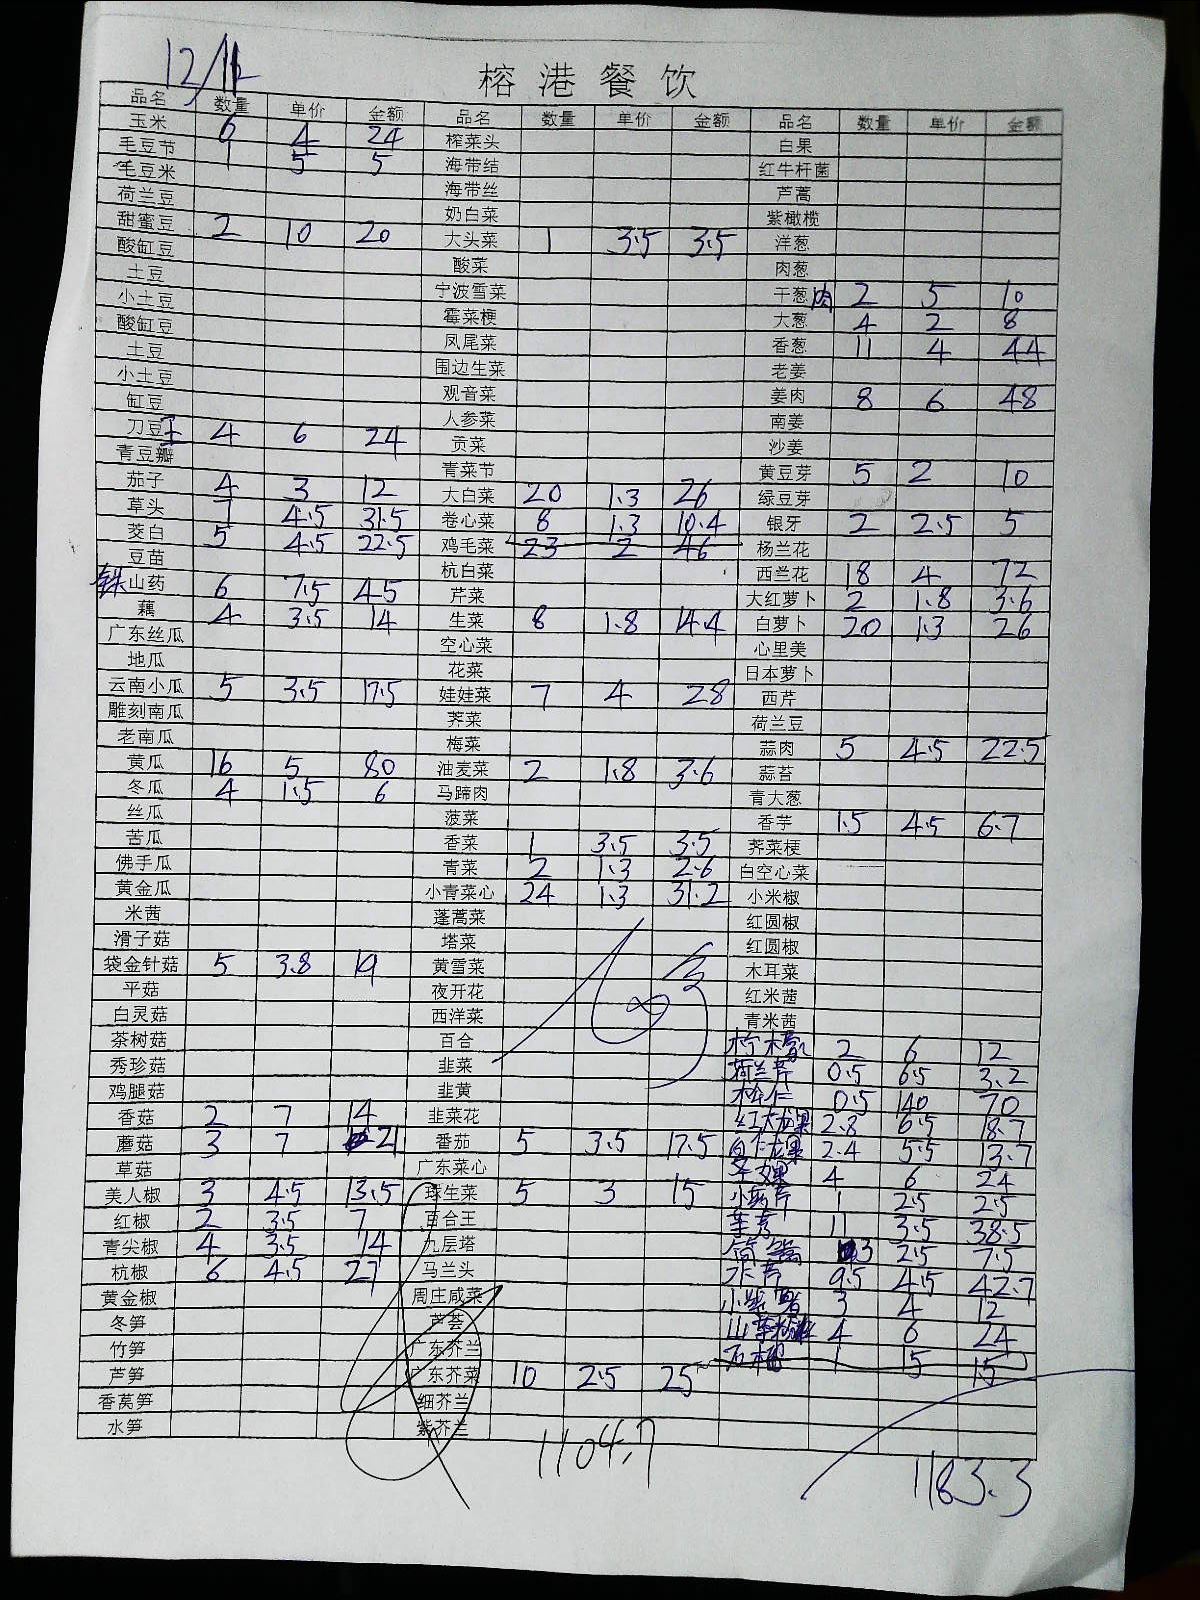 12/11
榕港餐饮
品名 数量 单价 金额 品名 数量 单价 金额 品名 数量 单价 金额
玉米 6 4 24 榨菜头 白果
毛豆节 1 5 5 海带结 红牛杆菌
毛豆米 海带丝 芦蒿
荷兰豆 奶白菜 紫橄榄
甜蜜豆 2 10 20 大头菜 1 3.5 3.5 洋葱
酸缸豆 酸菜 肉葱
土豆 宁波雪菜 干葱肉 2 5 10
小土豆 霉菜梗 大葱 4 2 8
酸缸豆 凤尾菜 香葱 11 4 44
土豆 围边生菜 老姜
小土豆 观音菜 姜肉 8 6 48
缸豆 人参菜 南姜
刀豆 4 6 24 贡菜 沙姜
青豆瓣 青菜节 黄豆芽 5 2 10
茄子 4 3 12 大白菜 20 1.3 26 绿豆芽
草头 7 4.5 31.5 卷心菜 8 1.3 10.4 银牙 2 2.5 5
茭白 5 4.5 22.5 鸡毛菜 23 2 46 杨兰花
豆苗 杭白菜 西兰花 18 4 72
铁山药 6 7.5 45 芹菜 大红萝卜 2 1.8 3.6
藕 4 3.5 14 生菜 8 1.8 14.4 白萝卜 20 1.3 26
广东丝瓜 空心菜 心里美
地瓜 花菜 日本萝卜
云南小瓜 5 3.5 17.5 娃娃菜 7 4 28 西芹
雕刻南瓜 荠菜 荷兰豆
老南瓜 梅菜 蒜肉 5 4.5 22.5
黄瓜 16 5 80 油麦菜 2 1.8 3.6 蒜苔
冬瓜 4 1.5 6 马蹄肉 青大葱
丝瓜 菠菜 香芋 1.5 4.5 6.7
苦瓜 香菜 1 3.5 3.5 荠菜梗
佛手瓜 青菜 2 1.3 2.6 白空心菜
黄金瓜 小青菜心 24 1.3 31.2 小米椒
米茜 蓬蒿菜 红圆椒
滑子菇 塔菜 红圆椒
袋金针菇 5 3.8 19 黄雪菜 木耳菜
平菇 夜开花 红米茜
白灵菇 西洋菜 青米茜
茶树菇 百合 柠檬 2 6 12
秀珍菇 韭菜 荷兰芹 0.5 6.5 3.2
鸡腿菇 韭黄 松仁 0.5 140 70
香菇 2 7 14 韭菜花 红火龙果 2.8 6.5 18.7
蘑菇 3 7 21 番茄 5 3.5 17.5 白火龙果 2.4 5.5 13.7
草菇 广东菜心 4 6 24
美人椒 3 4.5 13.5 球生菜 5 3 15 1 2.5 2.5
红椒 2 3.5 7 百合王 11 3.5 38.5
青尖椒 4 3.5 14 九层塔 3 2.5 7.5
杭椒 6 4.5 27 马兰头 9.5 4.5 42.7
黄金椒 周庄咸菜 小紫薯 3 4 12
冬笋 芦荟 4 6 24
竹笋 广东芥兰 石榴 1 15 15
芦笋 广东芥菜 10 2.5 25
香莴笋 细芥兰
水笋 紫芥兰
1104.7
1183.3